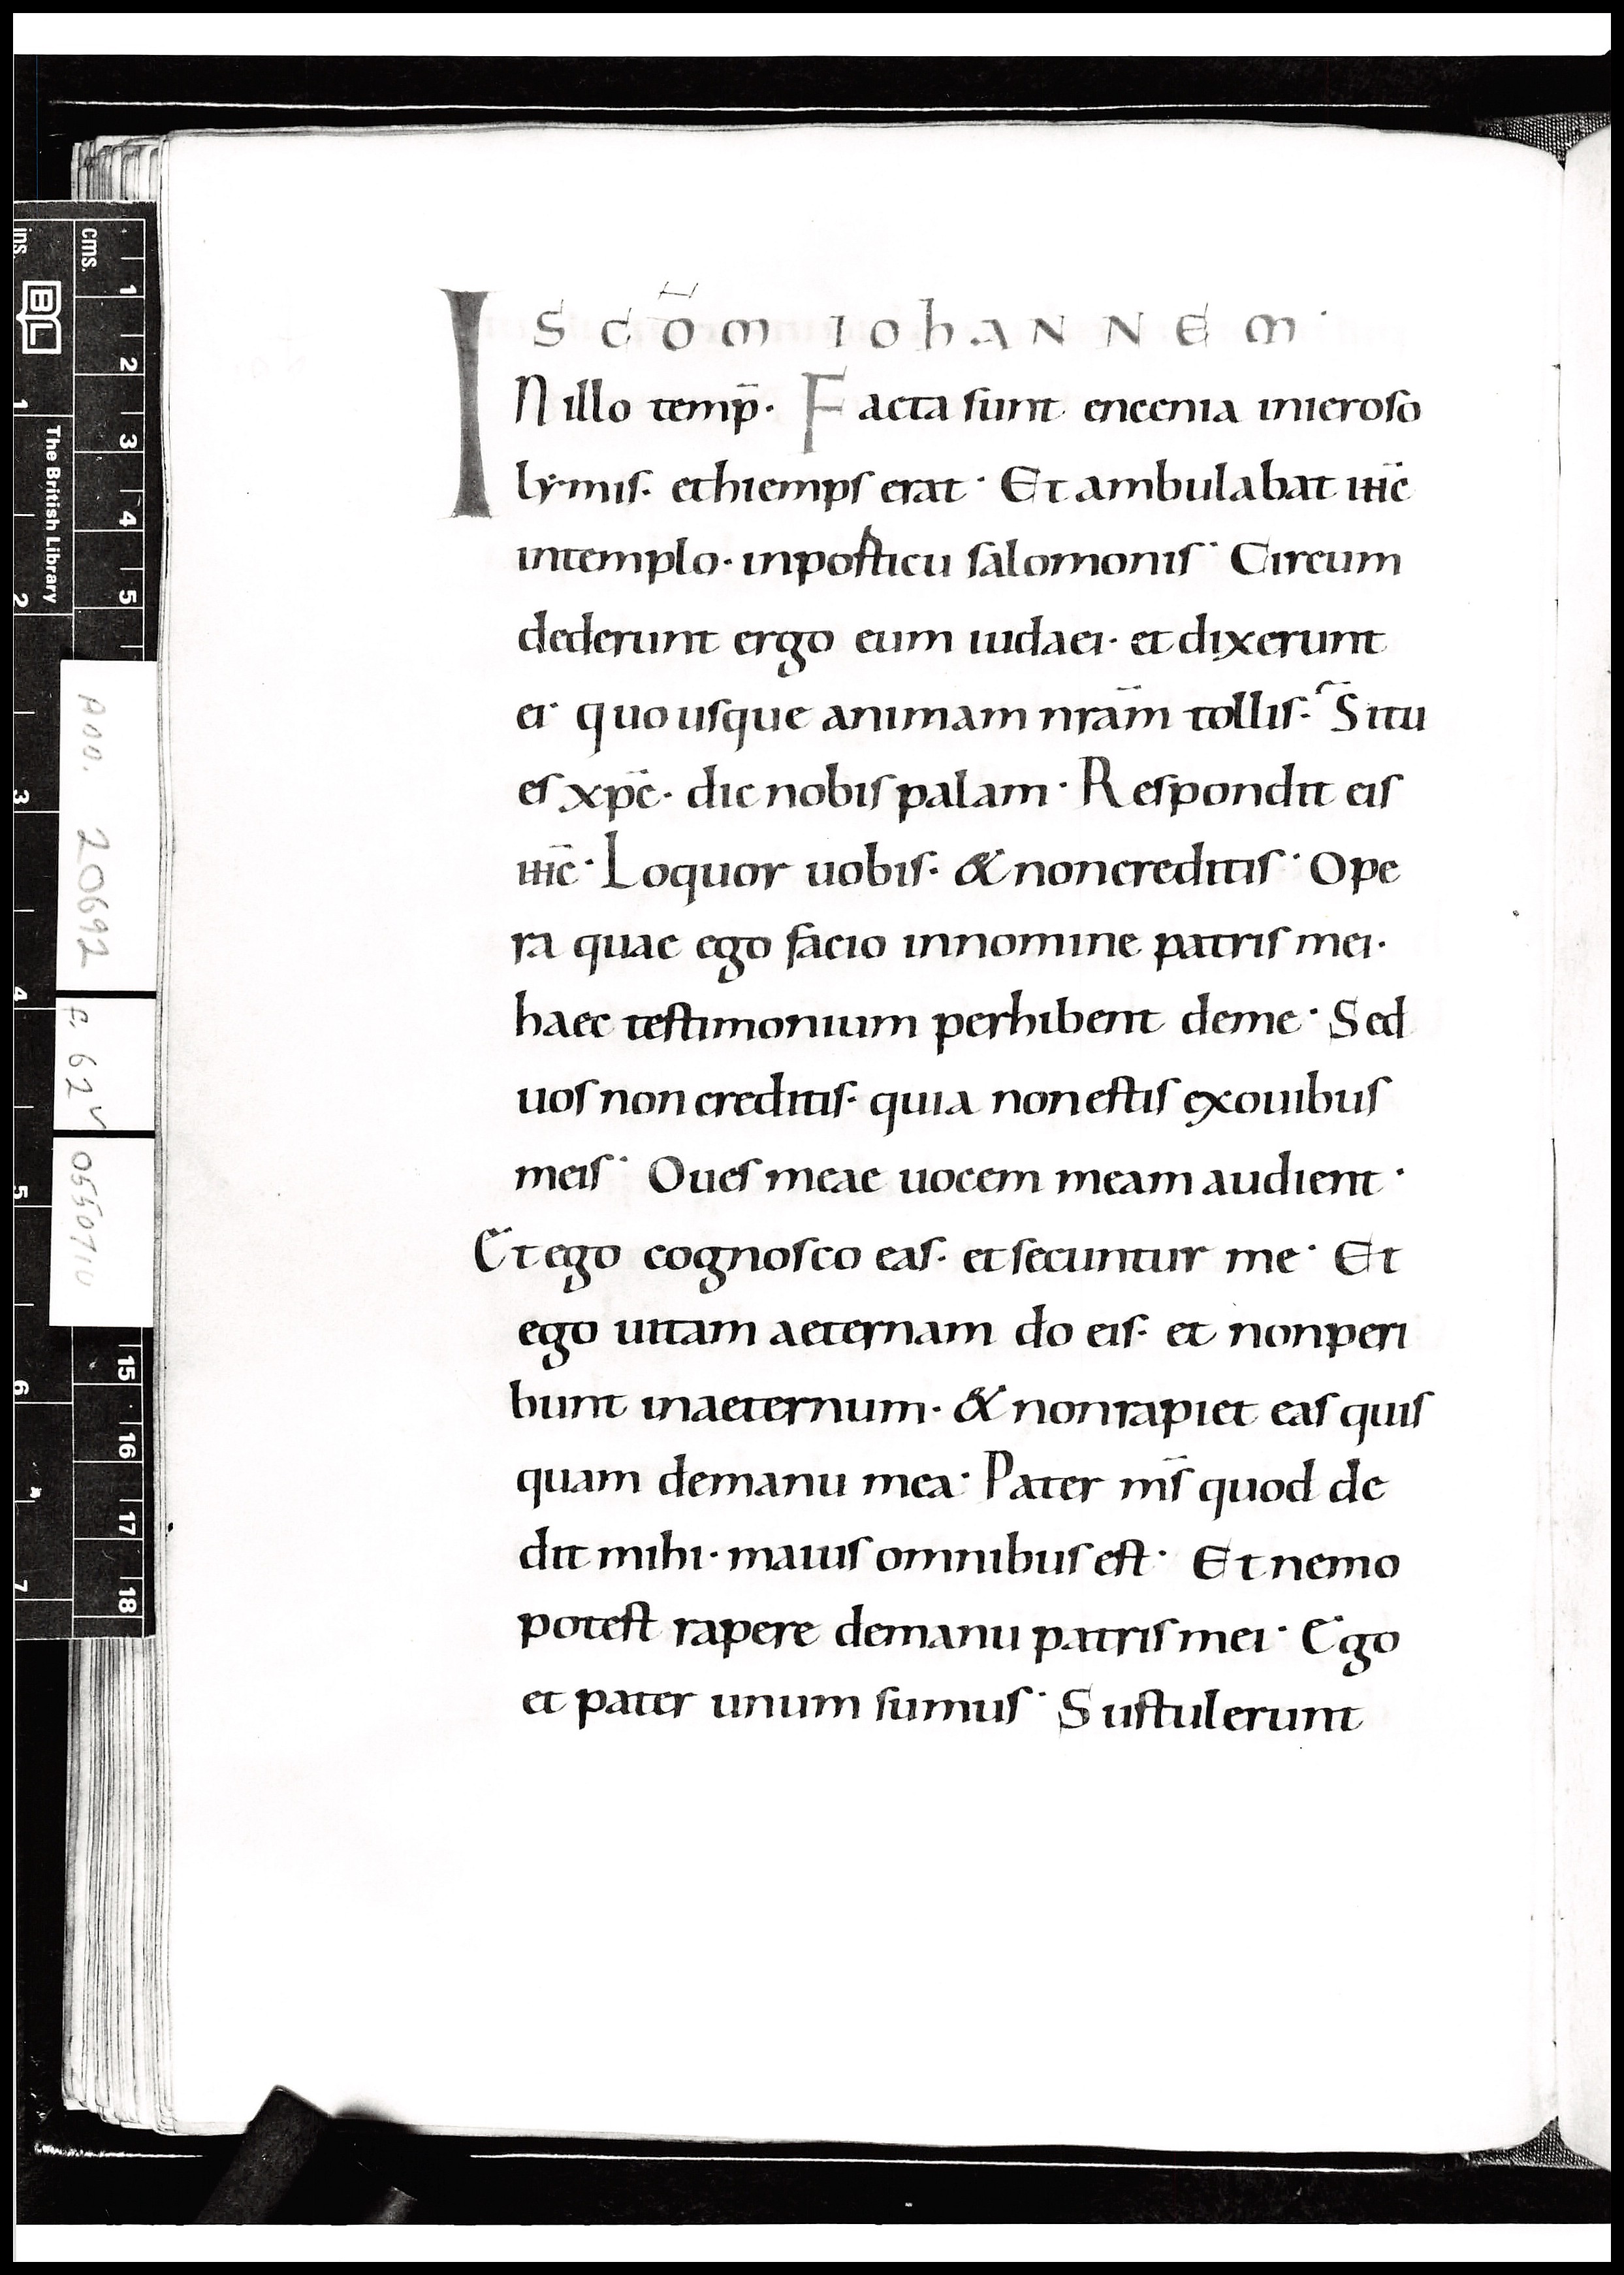 S CŌM IOhANNEM·
IN illo temp̄· Facta sunt encenia inieroso
lymis· ethiemps erat· Et ambulabat ih̄c
intemplo· inposticu salomonis· Circum
dederunt ergo eum iudaei· et dixerunt
ei· quousque animam nram̄ tollis· Situ
es xp̄c· dic nobis palam· Respondit eis
ih̄c· Loquor uobis· & noncreditis· Ope
ra quae ego facio innomine patris mei·
haec testimonium perhibent deme· Sed
uos non creditis· quia non estis exouibus
meis· Oues meae uocem meam audient·
Et ego cognosco eas· et secuntur me· Et
ego uitam aeternam do eis· et nonperi
bunt inaeternum· & nonrapiet eas quis
quam demanu mea· Pater ms̄ quod de
dit mihi· maius omnibus est· Et nemo
potest rapere demanu patris mei· Ego
et pater unum sumus· Sustulerunt
ins. cms.
BL The British Library
1 2 3 4 5
1 2 3 4 5 6 7
15 16 17 18
ADD. 20692
F. 62v
0550710